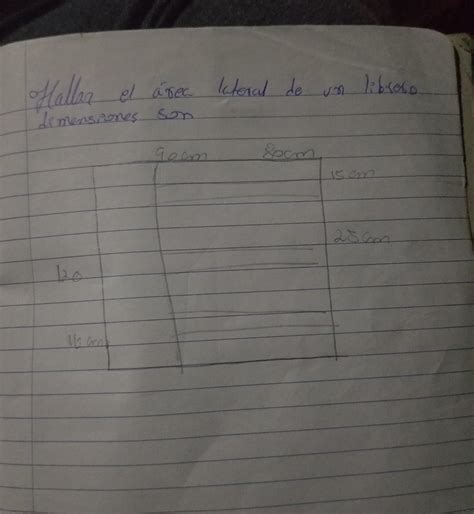 Hallar el área lateral de un librero
dimensiones son
90cm 80cm
15cm
25cm
120
40cm